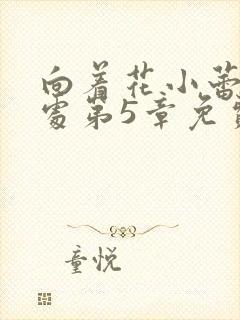 向着花小蕾
处第5章免费
童悦